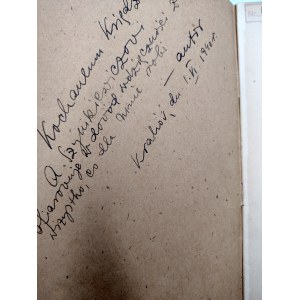 Kochanemu Księdzu
A. Szymkiewiczowi
ofiarowuję w dowód wdzięczności z
wszystko, co dla mnie robi
— autor
Kraków, dn. 1. VI 1940 r.